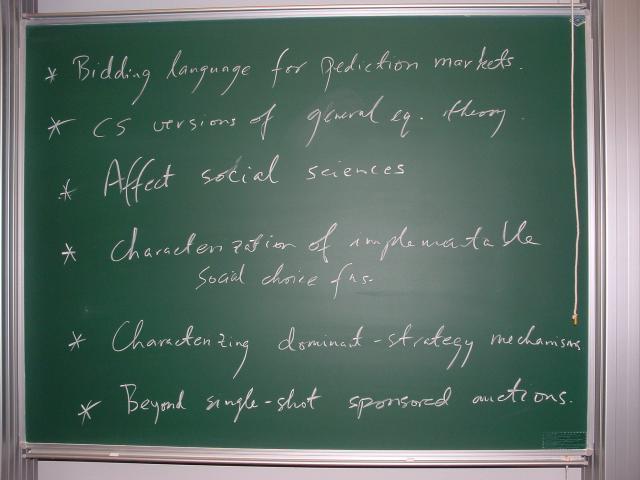 * Bidding language for pediction markets.
* CS versions of general eq. theory.
* Affect social sciences
* Characterization of implementable
Social choice fns.
* Characterizing dominant-strategy mechanisms
* Beyond single-shot sponsored auctions.